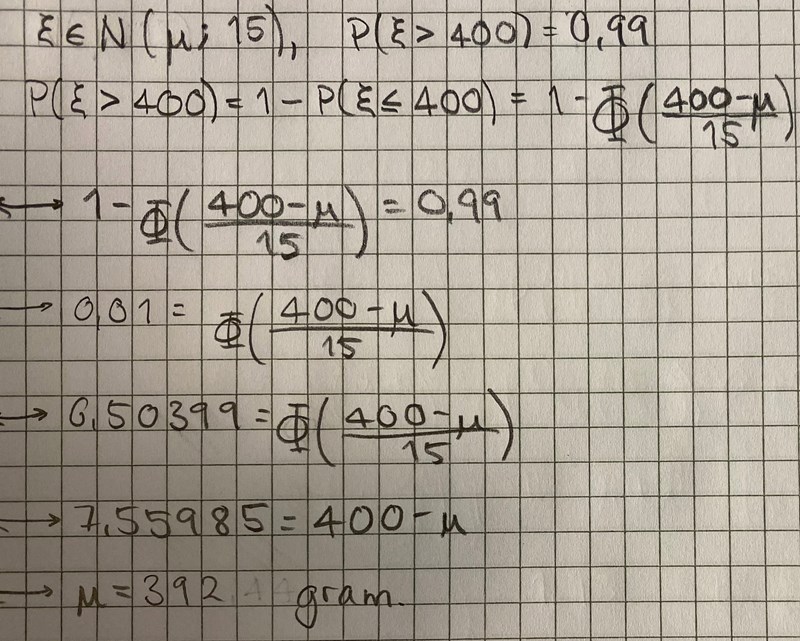 ξ ∈ N(μ; 15), P(ξ > 400) = 0,99
P(ξ > 400) = 1 - P(ξ ≤ 400) = 1 - Φ((400-μ)/15)
↔ 1 - Φ((400-μ)/15) = 0,99
→ 0,01 = Φ((400-μ)/15)
↔ 0,50399 = Φ((400-μ)/15)
→ 7,55985 = 400-μ
→ μ = 392 gram.